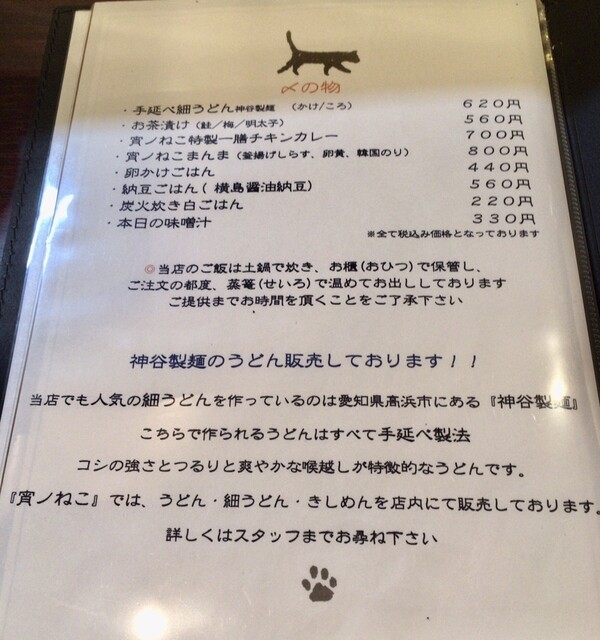 〆の物
・手延べ細うどん神谷製麺 (かけ/ころ) 620円
・お茶漬け(鮭/梅/明太子) 560円
・宵ノねこ特製一膳チキンカレー 700円
・宵ノねこまんま(釜揚げしらす、卵黄、韓国のり) 800円
・卵かけごはん 440円
・納豆ごはん(横島醤油納豆) 560円
・炭火炊き白ごはん 220円
・本日の味噌汁 330円
※全て税込み価格となっております
◎当店のご飯は土鍋で炊き、お櫃(おひつ)で保管し、
ご注文の都度、蒸篭(せいろ)で温めてお出ししております
ご提供までお時間を頂くことをご了承下さい
神谷製麺のうどん販売しております!!
当店でも人気の細うどんを作っているのは愛知県高浜市にある『神谷製麺』
こちらで作られるうどんはすべて手延べ製法
コシの強さとつるりと爽やかな喉越しが特徴的なうどんです。
『宵ノねこ』では、うどん・細うどん・きしめんを店内にて販売しております。
詳しくはスタッフまでお尋ね下さい